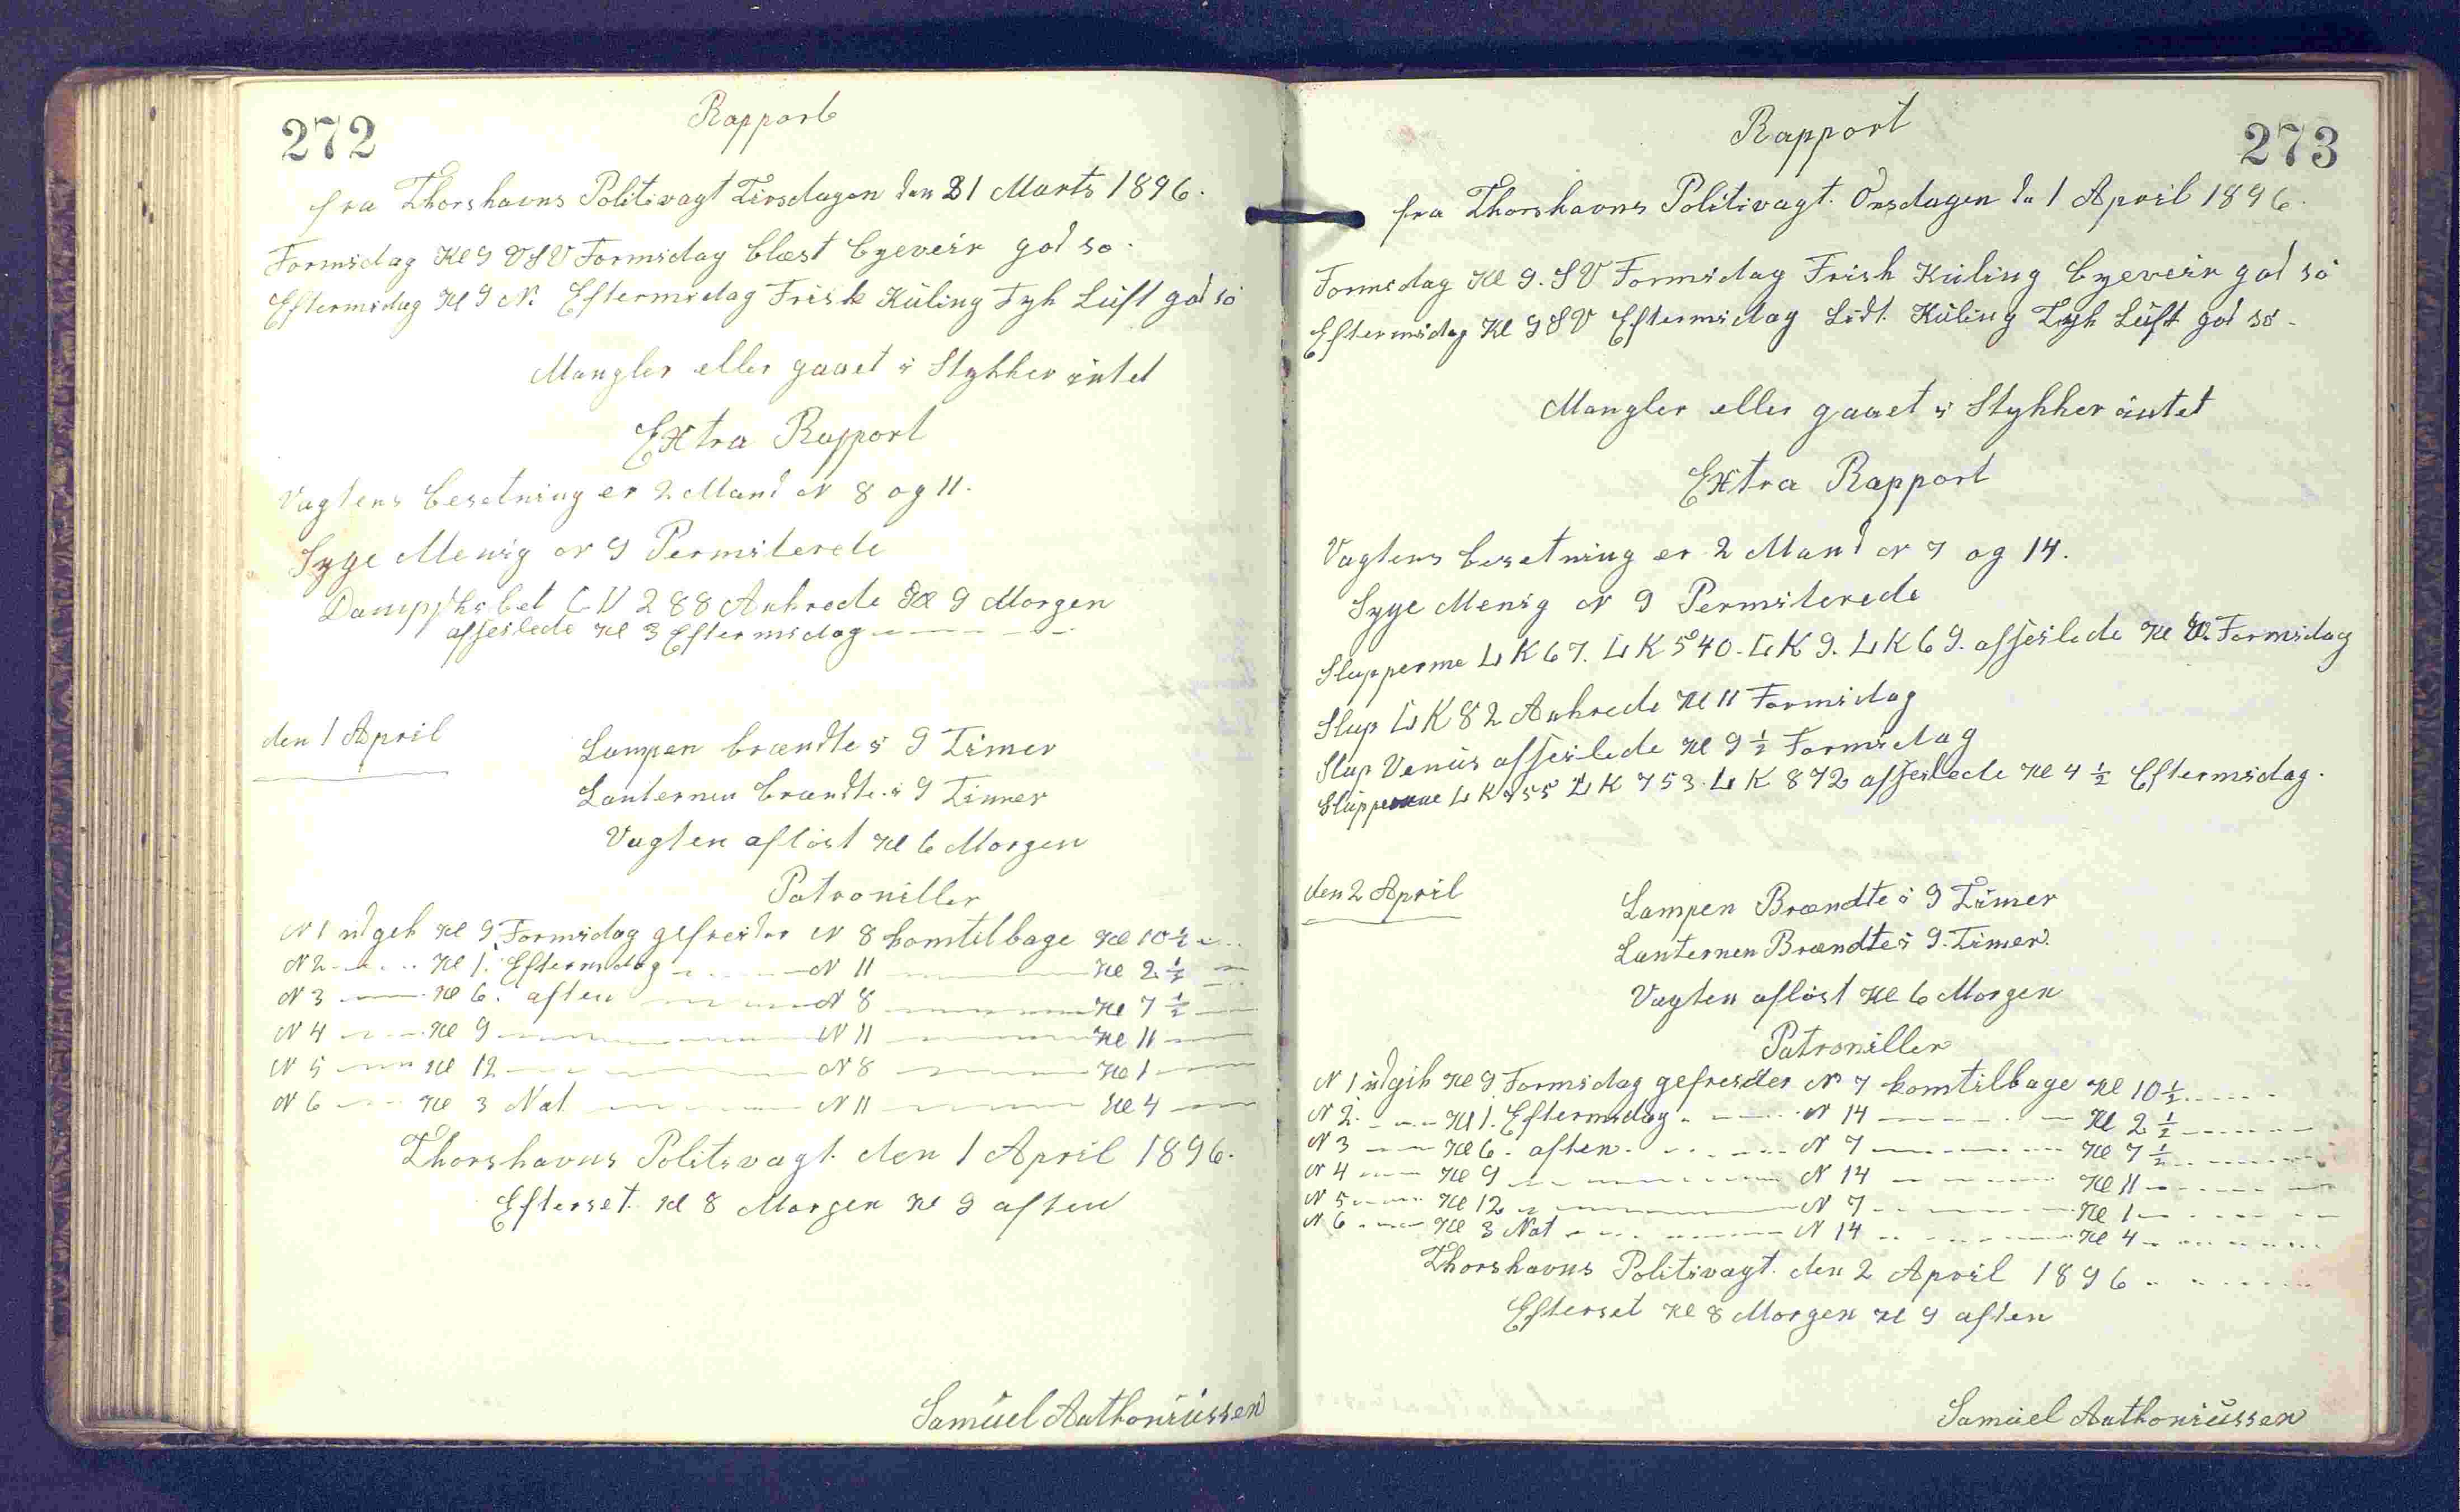 272
Rapport
fra Thorshavns Politivagt Tirsdagen den 31 Marts 1896.
Formidag Kl 9 VSV Formidag blæst byeveir god sø.
Eftermidag Kl 9 N. Eftermidag Frisk Kuling Tyk Luft god sø
Mangler eller gaaet i Stykker intet
Extra Rapport
Vagtens besetning er 2 Mand N 8 og 11.
Syge Menig N 9 Permiterede
Dampskibet LV 288 Ankrede Kl 9 Morgen
afseilede Kl 3 Eftermidag
den 1 April
Lampen brændte i 9 Timer
Lanternen brændte i 9 Timer
Vagten afløst Kl 6 Morgen
Patroniller
N 1 udgek Kl 9 Formidag gefreider N 8 komtilbage Kl 10 ½
N 2 Kl 1. Eftermidag N 11 Kl 2 ½
N 3 Kl 6. aften N 8 Kl 7 ½
N 4 Kl 9 N 11 Kl 11
N 5 Kl 12 N 8 Kl 1
N 6 Kl 3 Nat N 11 Kl 4
Thorshavns Politivagt. den 1 April 1896.
Efterset Kl 8 Morgen Kl 9 aften
Samuel Anthoniussen
273
Rapport
fra Thorshavns Politivagt. Onsdagen d. 1 April 1896.
Formidag Kl 9. SV Formidag Frisk Kuling byeveir god sø
Eftermidag Kl 9 SV Eftermidag Lidt Kuling Tyk Luft god sø
Mangler eller gaaet i Stykker intet
Extra Rapport
Vagtens besetning er 2 Mand N 7 og 14.
Syge Menig N 9 Permiterede
Slupperne LK 67. LK 540. LK 9. LK 69. afseilede Kl Formidag
Slup LK 82 Ankrede Kl 11 Formidag
Slup Venus afseilede Kl 9 ½ Formidag
Slupperne LK 755 LK 753. LK 872 afseilede Kl 4 ½ Eftermidag.
den 2 April
Lampen Brændte i 9 Timer
Lanternen Brændte i 9. Timer.
Vagten afløst Kl 6 Morgen
Patroniller
N 1 udgik Kl 9 Formidag gefreider N 7 komtilbage Kl 10 ½
N 2. Kl 1. Eftermidag. N 14 Kl 2 ½
N 3 Kl 6. aften. N 7 Kl 7 ½
N 4 Kl 9 N 14 Kl 11
N 5 Kl 12 N 7 Kl 1
N 6 Kl 3 Nat N 14 Kl 4
Thorshavns Politivagt. den 2 April 1896
Efterset Kl 8 Morgen Kl 9 aften
Samuel Anthoniussen